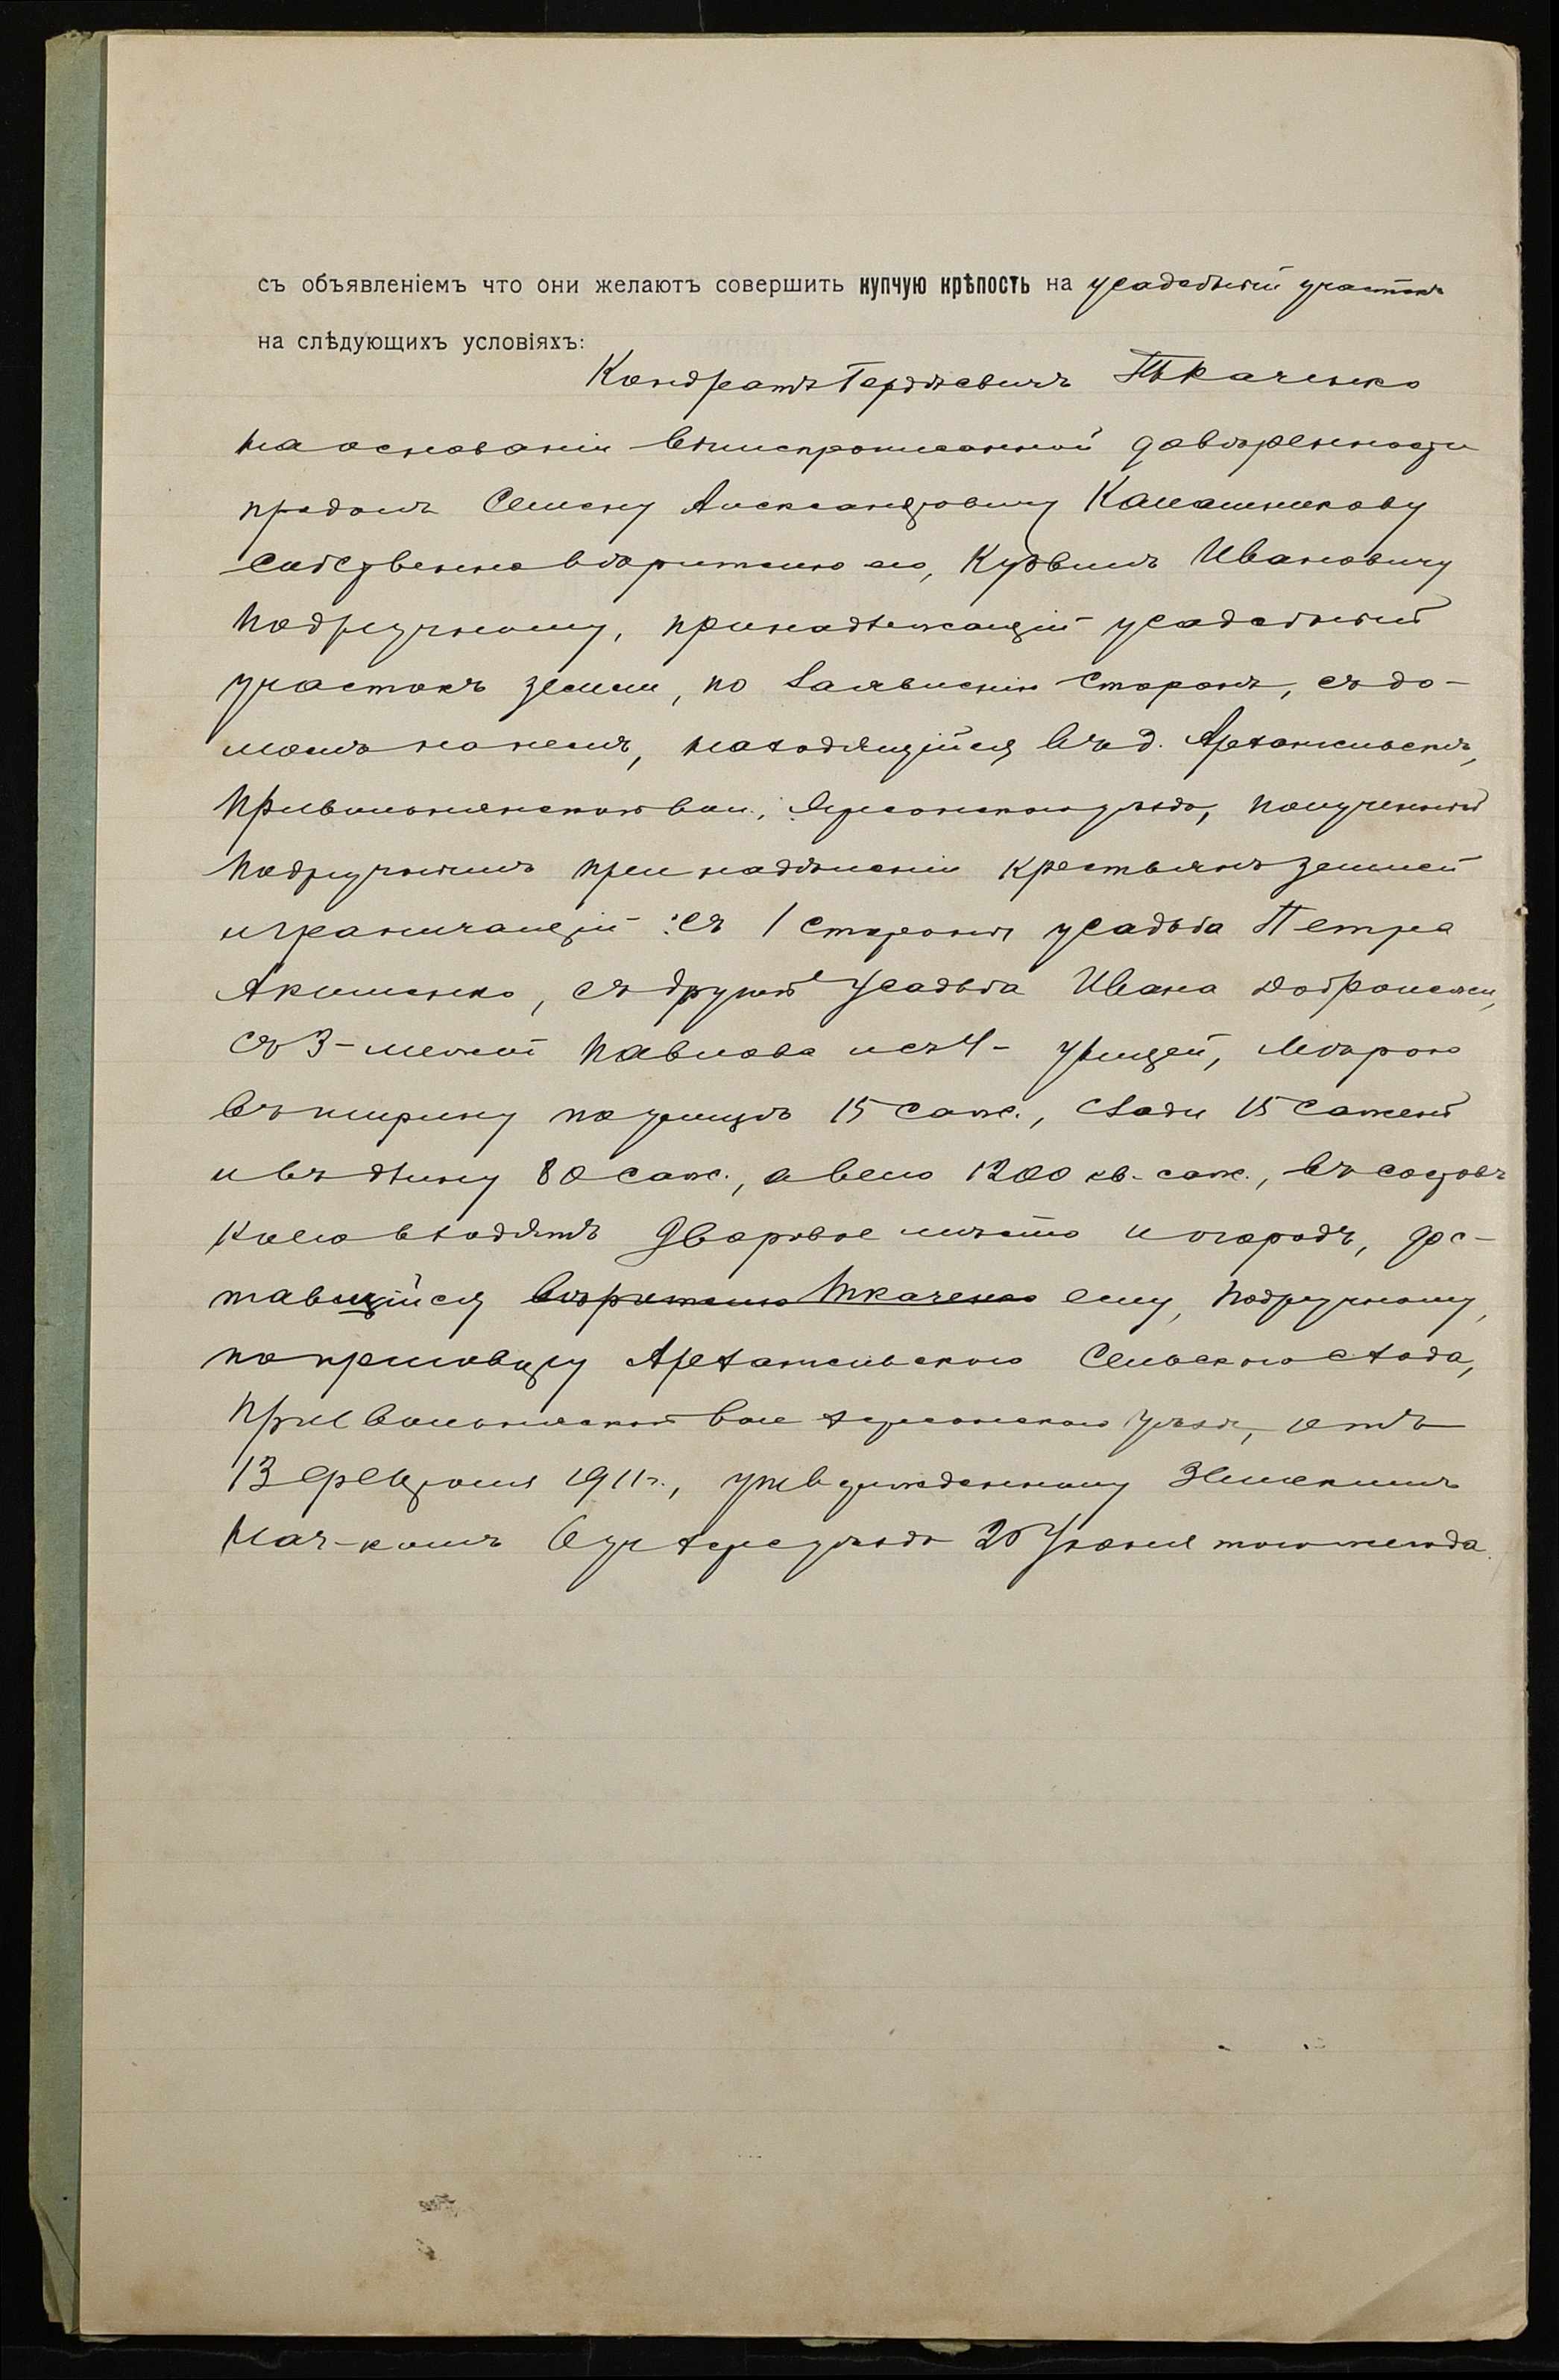 съ объявленіемъ что они желаютъ совершить купчую крѣпость на усадебный участокъ
на слѣдующихъ условіяхъ:
Кондратъ Гордѣевичъ Ткаченко
на основаніи вышепрописанной довѣренности
продалъ Семену Александровичу Калашникову
собственно вѣрителю его, Ивановичу
Подручному, принадлежащій усадебный
участокъ земли, по заявленію сторонъ, съ до-
момъ на немъ, находящійся въ д. Архангельскѣ,
Привольнянской вол., Херсонскаго уѣзда, полученный
Подручнымъ при надѣленіи крестьянъ землей
и граничащій: съ 1 стороны усадьба Петра
Акименко, съ другой усадьба Ивана
съ 3-межой Павлова и съ 4- улицей, мѣрою
въ ширину по улицѣ 15 саж., сзади 15 сажень
и въ длину 80 саж., а всего 1200 кв. саж., въ составъ
коего входятъ дворовое мѣсто и огородъ, дос-
тавшійся вѣрителю Ткаченко ему, Подручному,
по приговору Архангельскаго Сельскаго схода,
Привольнянской вол Херсонскаго уѣзда, отъ
13 февраля 1911 г., утвержденному Земскимъ
Нач-комъ 6 уч Херс уѣзда 20 Іюня того же года.